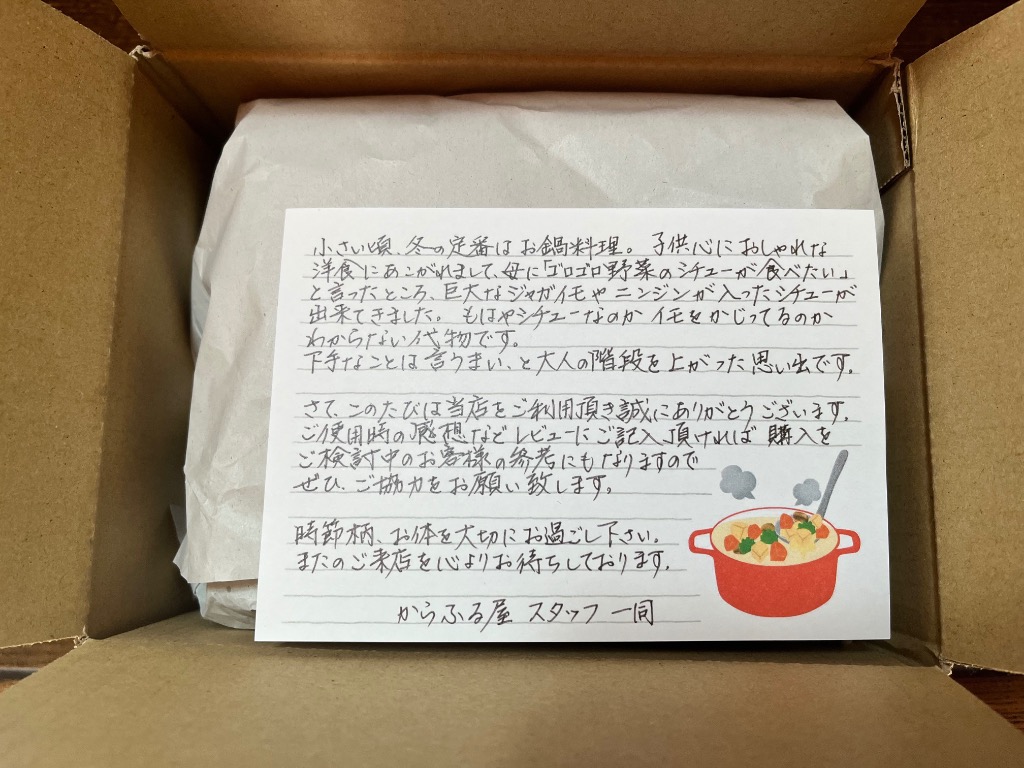 小さい頃、冬の定番はお鍋料理。子供心におしゃれな
洋食にあこがれまして、母に「ゴロゴロ野菜のシチューが食べたい」
と言ったところ、巨大なジャガイモやニンジンが入ったシチューが
出来てきました。もはやシチューなのかイモをかじってるのか
わからない代物です。
下手なことは言うまい、と大人の階段を上がった思い出です。
さて、このたびは当店をご利用頂き誠にありがとうございます。
ご使用時の感想などレビューにご記入頂ければ購入を
ご検討中のお客様の参考にもなりますので
ぜひ、ご協力をお願い致します。
時節柄、お体を大切にお過ごし下さい。
またのご来店を心よりお待ちしております。
からふる屋 スタッフ一同